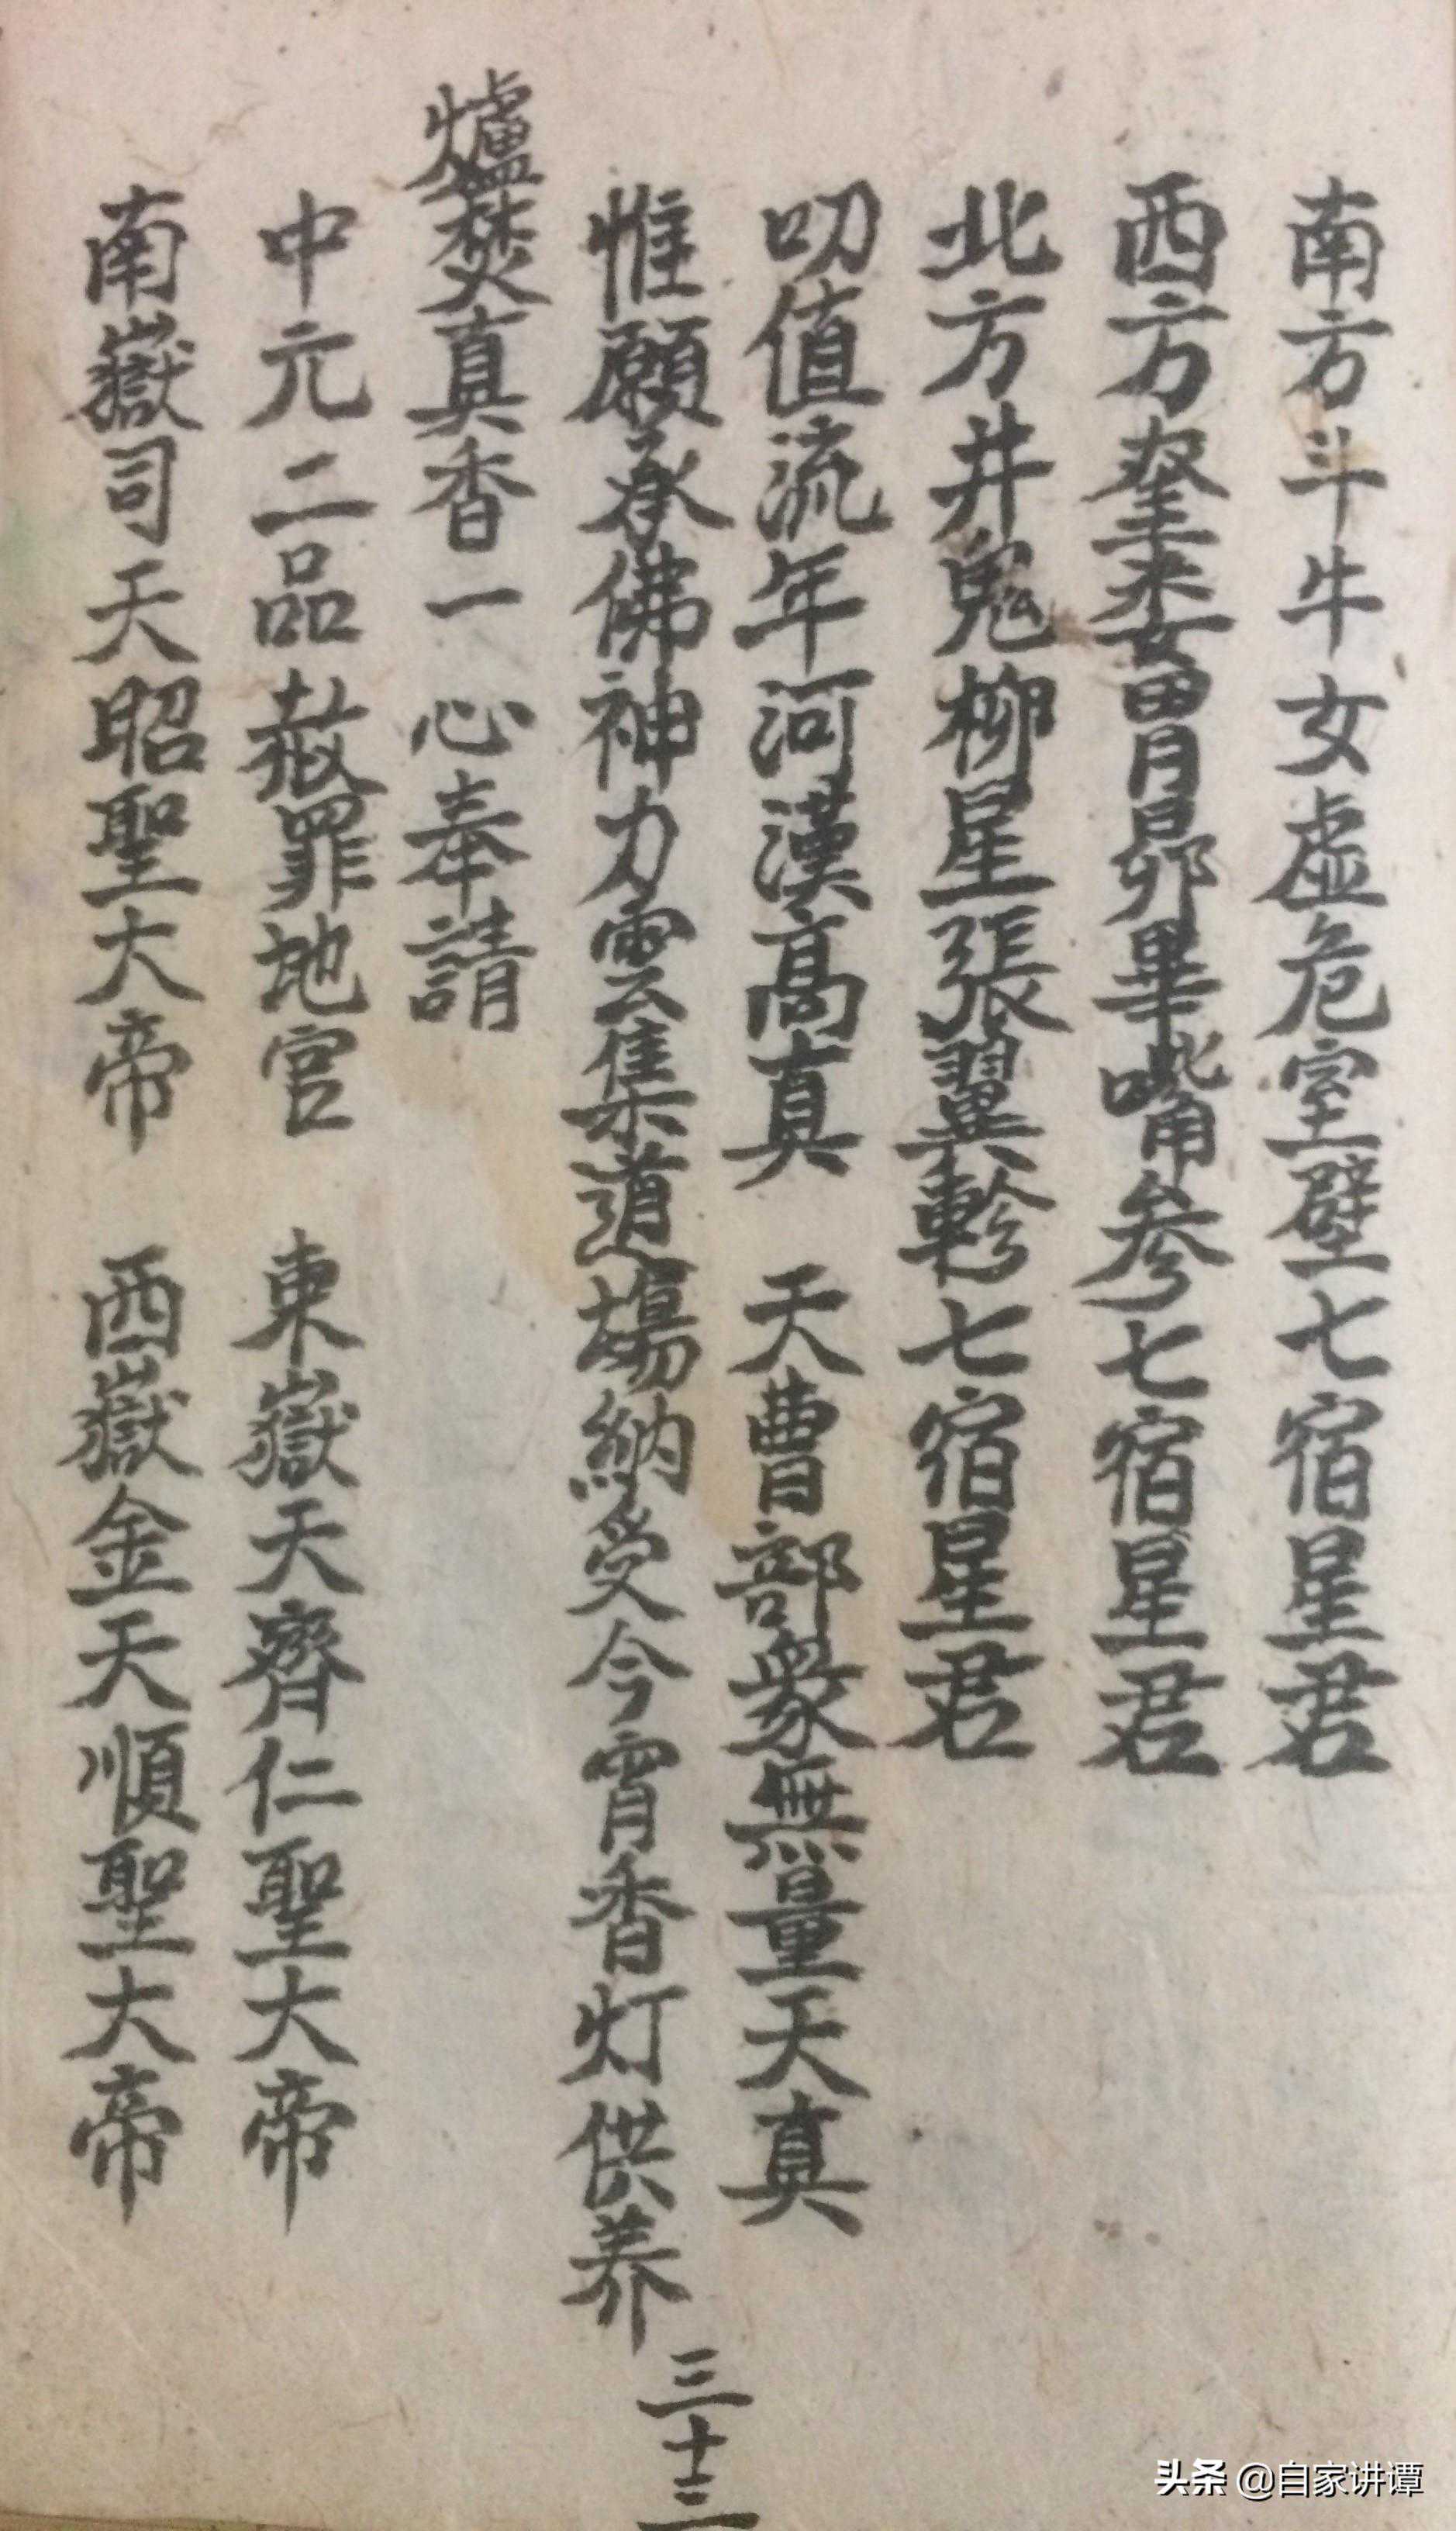 南方斗牛女虛危室壁七宿星君
西方奎婁胃昴畢嘴參七宿星君
北方井鬼柳星張翼軫七宿星君
叨值流年河漢高真 天曹部衆無量天真
惟願承佛神力雲集道場納受今宵香灯供养
爐焚真香一心奉請
中元二品赦罪地官 東嶽天齊仁聖大帝
南嶽司天昭聖大帝 西嶽金天順聖大帝
三十二
头条 @自家讲谭